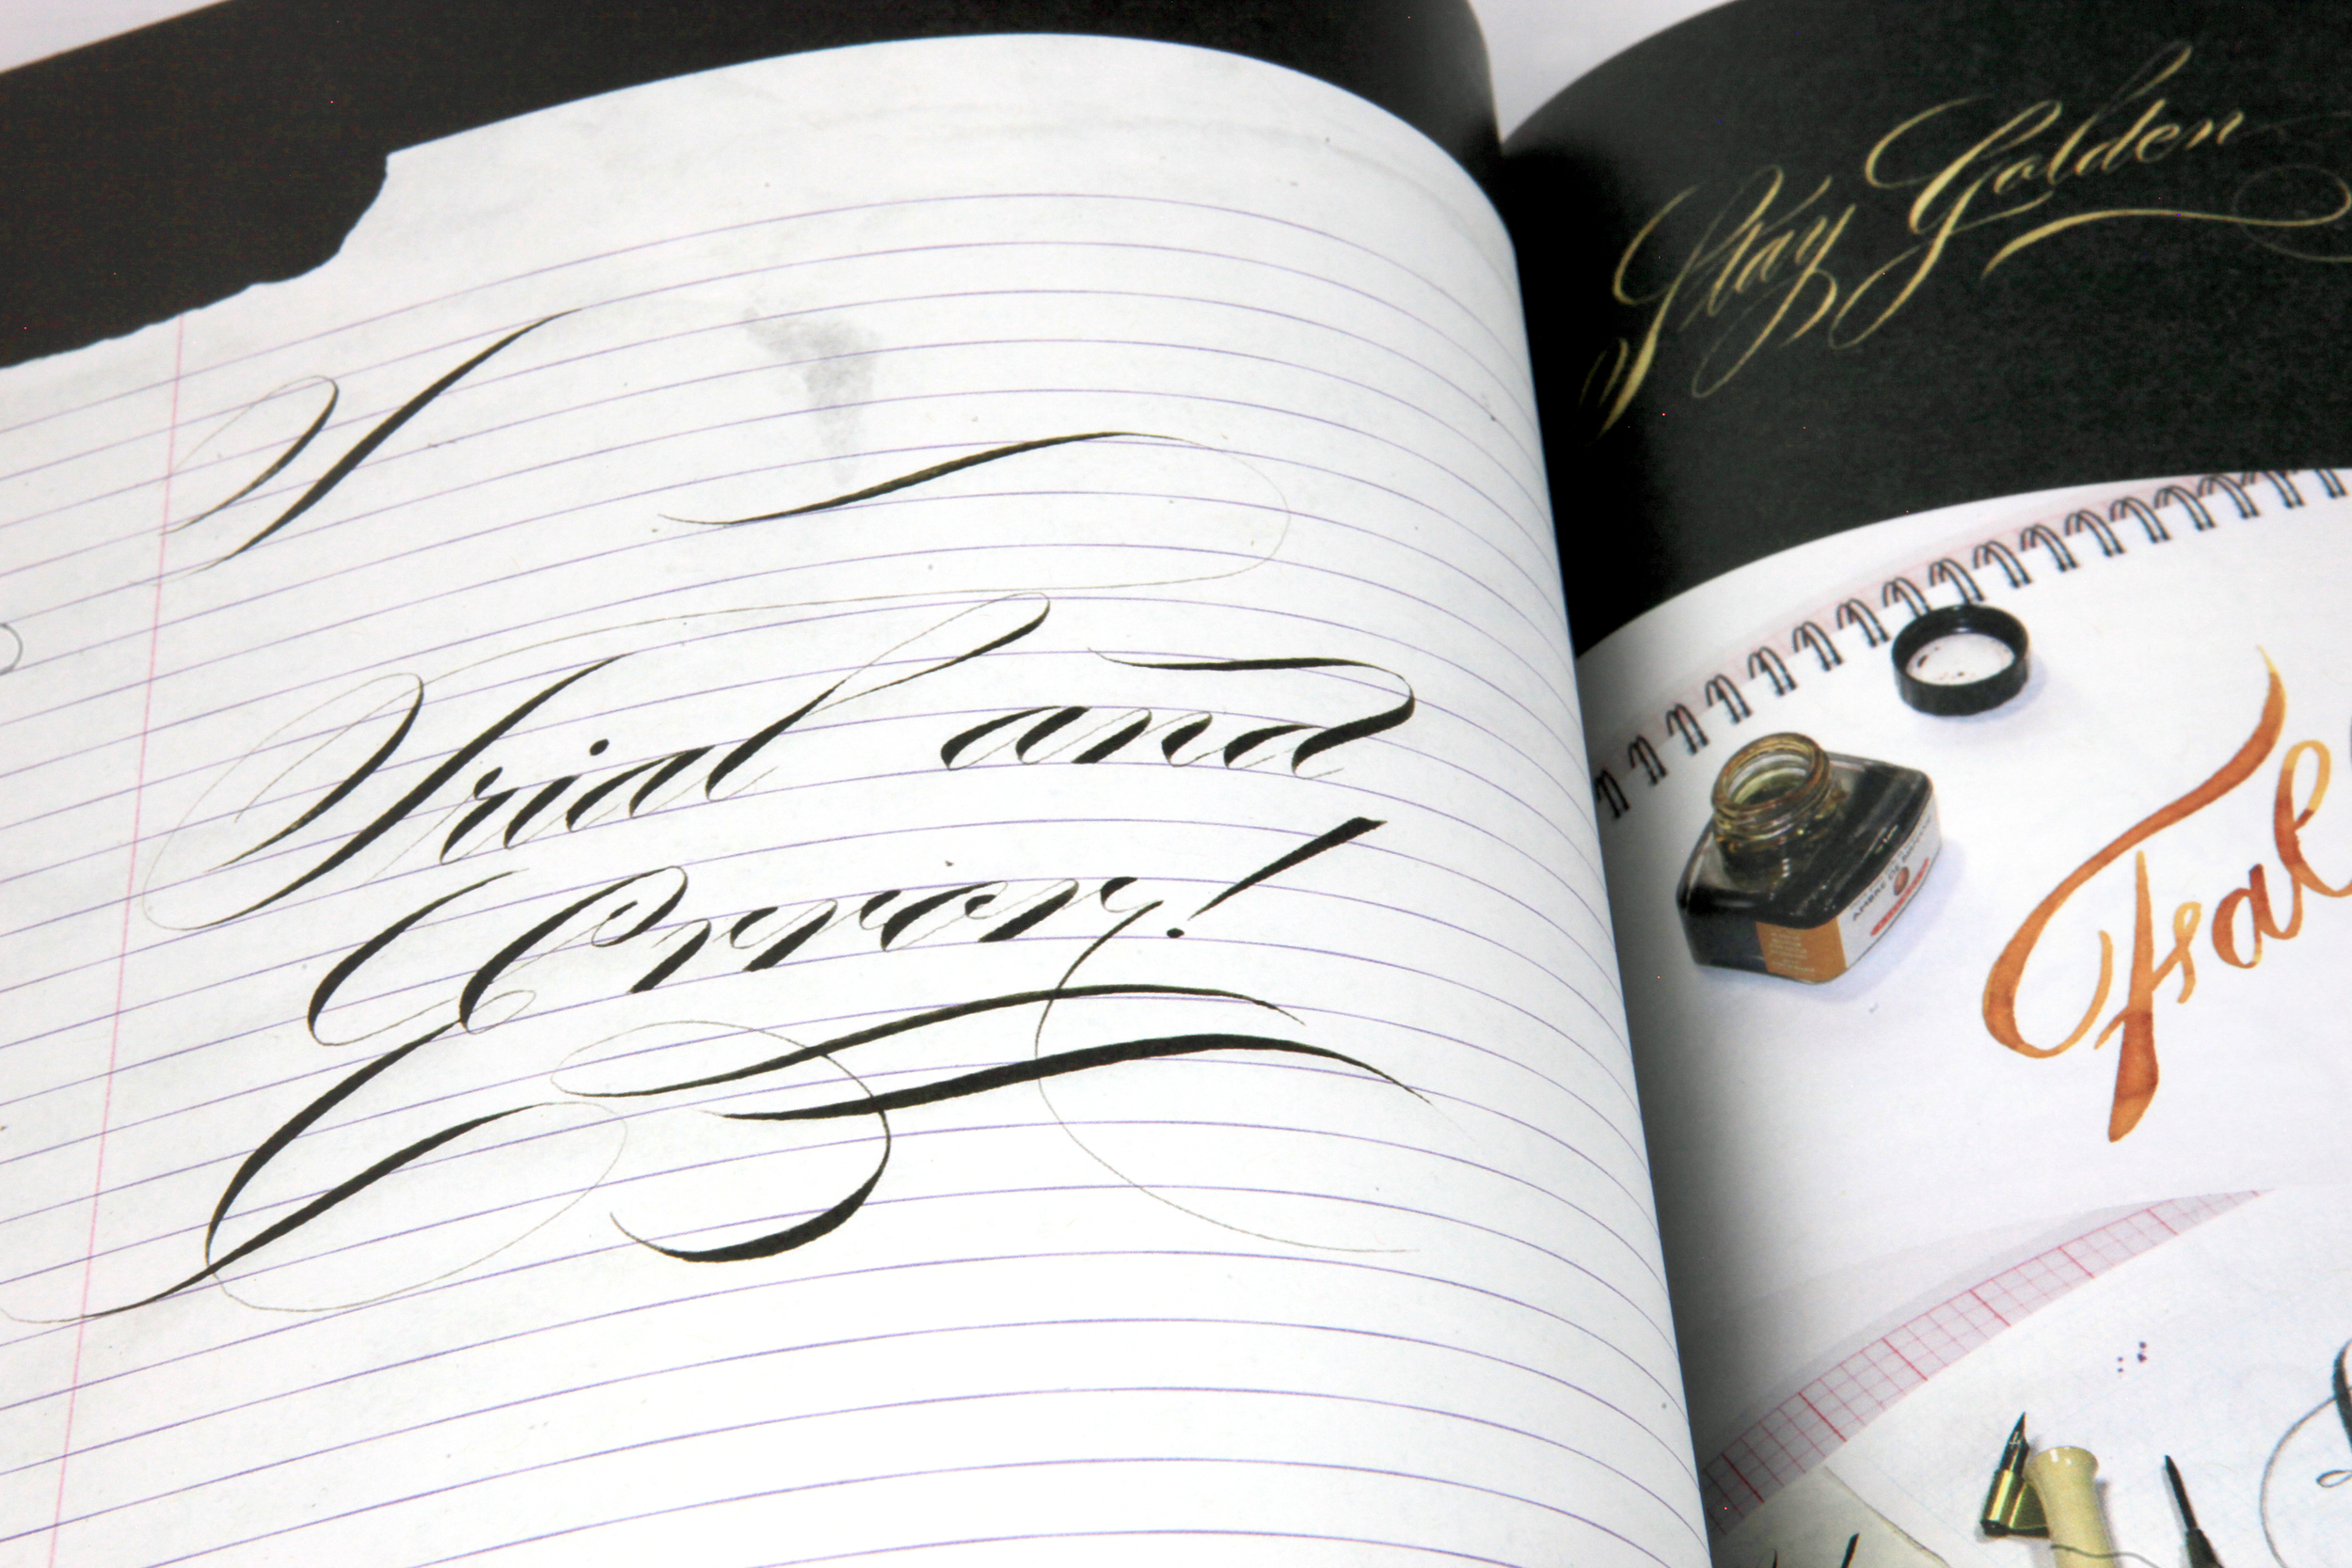 Trial and
Error!
Stay Golden